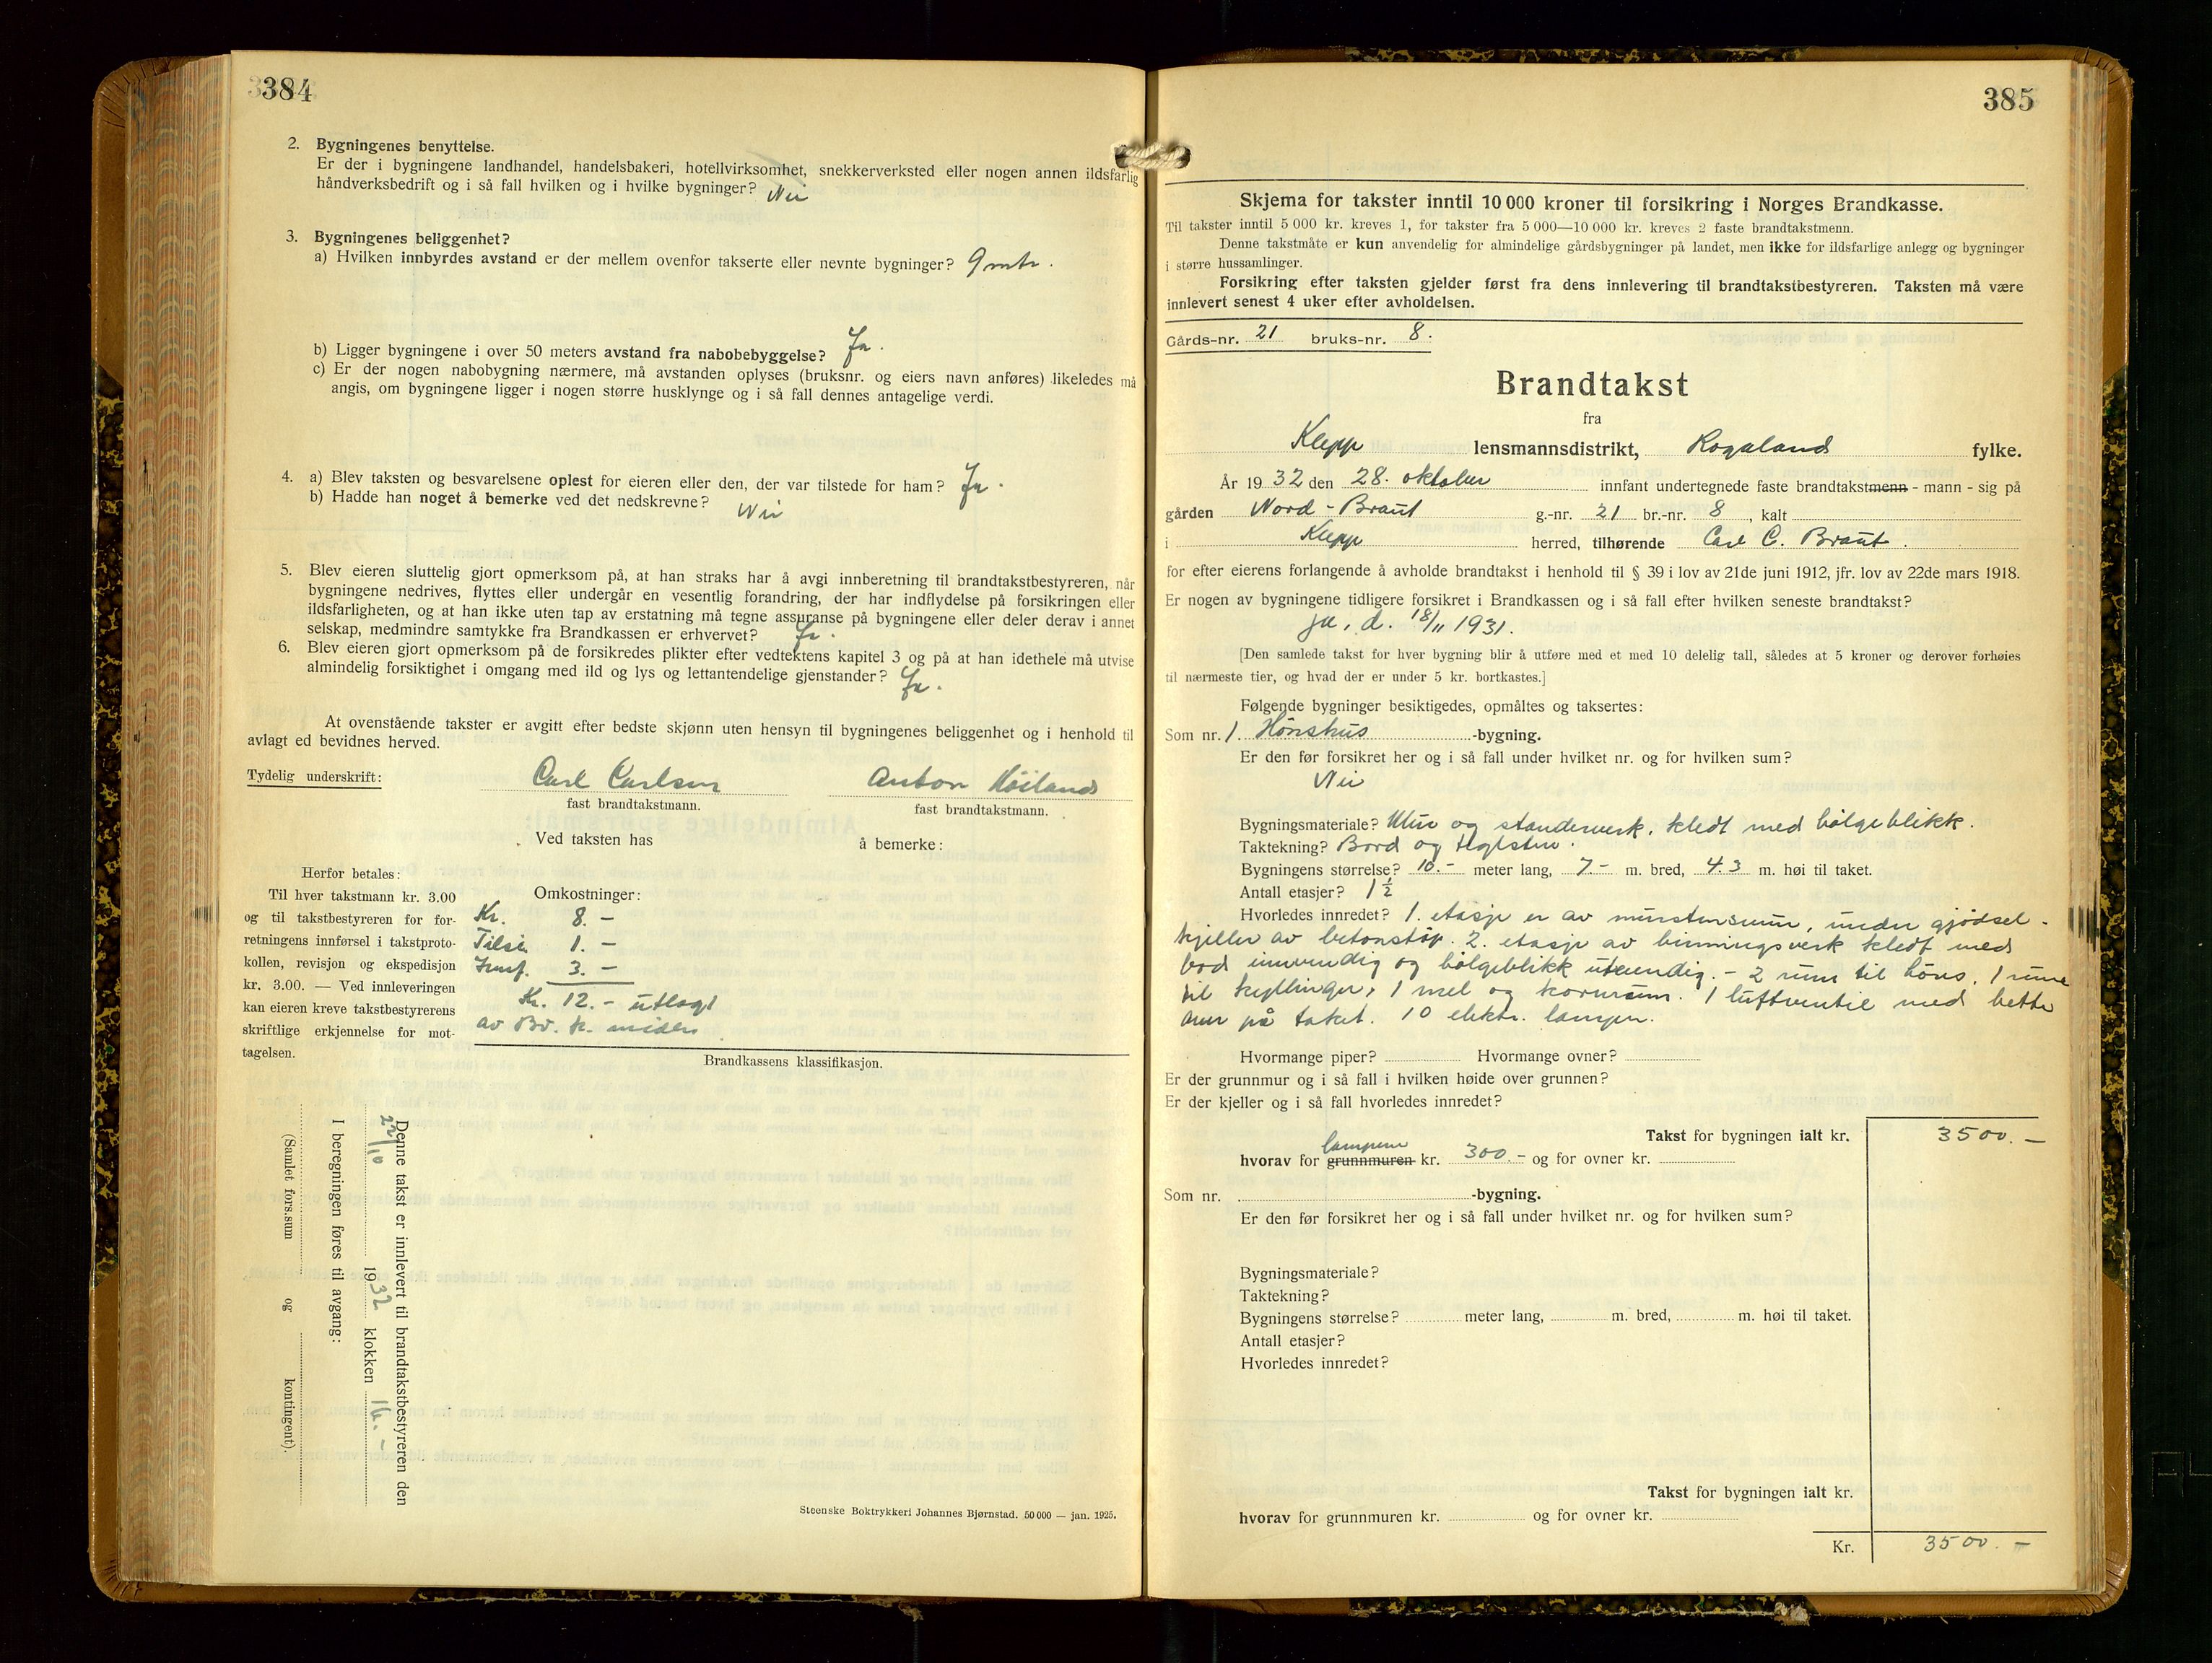 384
2. Bygningenes benyttelse.
Er der i bygningene landhandel, handelsbakeri, hotellvirksomhet, snekkerverksted eller nogen annen ildsfarlig
håndverksbedrift og i så fall hvilken og i hvilke bygninger? Nei
3. Bygningenes beliggenhet?
a) Hvilken innbyrdes avstand er der mellem ovenfor takserte eller nevnte bygninger? 9 mtr.
b) Ligger bygningene i over 50 meters avstand fra nabobebyggelse? Ja.
c) Er der nogen nabobygning nærmere, må avstanden oplyses (bruksnr. og eiers navn anføres) likeledes må
angis, om bygningene ligger i nogen større husklynge og i så fall dennes antagelige verdi.
4. a) Blev taksten og besvarelsene oplest for eieren eller den, der var tilstede for ham? Ja.
b) Hadde han noget å bemerke ved det nedskrevne? Nei
5. Blev eieren sluttelig gjort opmerksom på, at han straks har å avgi innberetning til brandtakstbestyreren, når
bygningene nedrives, flyttes eller undergår en vesentlig forandring, der har indflydelse på forsikringen eller
ildsfarligheten, og at han ikke uten tap av erstatning må tegne assuranse på bygningene eller deler derav i annet
selskap, medmindre samtykke fra Brandkassen er erhvervet? Ja.
6. Blev eieren gjort opmerksom på de forsikredes plikter efter vedtektens kapitel 3 og på at han idethele må utvise
almindelig forsiktighet i omgang med ild og lys og lettantendelige gjenstander? Ja.
At ovenstående takster er avgitt efter bedste skjønn uten hensyn til bygningenes beliggenhet og i henhold til
avlagt ed bevidnes herved.
Tydelig underskrift: Carl Carlsen Anton Höiland
fast brandtakstmann. fast brandtakstmann.
Ved taksten has å bemerke:
Herfor betales:
Til hver takstmann kr. 3.00
og til takstbestyreren for for-
retningens innførsel i takstproto-
kollen, revisjon og ekspedisjon
kr. 3.00. — Ved innleveringen
kan eieren kreve takstbestyrerens
skriftlige erkjennelse for mot-
tagelsen.
Omkostninger:
Kr. 8.-
Tilsi. 1.-
3.-
Kr. 12.- utlagt
av Br. k. midler
Brandkassens klassifikasjon.
Denne takst er innlevert til brandtakstbestyreren den
22/10 1932 klokken 16.-
I beregningen føres til avgang:
(Samlet fors.sum og kontingent).
Steenske Boktrykkeri Johannes Bjørnstad. 50 000 — jan. 1925.
385
Skjema for takster inntil 10 000 kroner til forsikring i Norges Brandkasse.
Til takster inntil 5 000 kr. kreves 1, for takster fra 5 000—10 000 kr. kreves 2 faste brandtakstmenn.
Denne takstmåte er kun anvendelig for almindelige gårdsbygninger på landet, men ikke for ildsfarlige anlegg og bygninger
i større hussamlinger.
Forsikring efter taksten gjelder først fra dens innlevering til brandtakstbestyreren. Taksten må være
innlevert senest 4 uker efter avholdelsen.
Gårds-nr. 21 bruks-nr. 8.
Brandtakst
fra
Klepp lensmannsdistrikt, Rogaland fylke.
År 1932 den 28. oktober innfant undertegnede faste brandtakstmenn - mann - sig på
gården Nord-Braut g.-nr. 21 br.-nr. 8, kalt
i Klepp herred, tilhørende Carl C. Braut.
for efter eierens forlangende å avholde brandtakst i henhold til § 39 i lov av 21de juni 1912, jfr. lov av 22de mars 1918.
Er nogen av bygningene tidligere forsikret i Brandkassen og i så fall efter hvilken seneste brandtakst?
ja, d. 18/11 1931.
[Den samlede takst for hver bygning blir å utføre med et med 10 delelig tall, således at 5 kroner og derover forhøies
til nærmeste tier, og hvad der er under 5 kr. bortkastes.]
Følgende bygninger besiktigedes, opmåltes og taksertes:
Som nr. 1. Hönshus -bygning.
Er den før forsikret her og i så fall under hvilket nr. og for hvilken sum?
Nei
Bygningsmateriale? Mur og standerverk, kledt med bölgeblikk.
Taktekning? Bord og teglsten.
Bygningens størrelse? 10.- meter lang, 7.- m. bred, 4.3 m. høi til taket.
Antall etasjer? 1 1/2
Hvorledes innredet? 1. etasje er av murstensmur, under gjödsel-
kjeller av betonstöp. 2. etasje av binningsverk kledt med
bord innvendig og bölgeblikk utvendig. - 2 rum til höns, 1 rum
til kyllinger, 1 mel og kornrum. 1 luftventil med hette
over på taket. 10 elektr. lamper.
Hvormange piper? Hvormange ovner?
Er der grunnmur og i så fall i hvilken høide over grunnen?
Er der kjeller og i så fall hvorledes innredet?
Takst for bygningen ialt kr. 3500.-
lampene
hvorav for grunnmuren kr. 300.- og for ovner kr.
Som nr. -bygning.
Er den før forsikret her og i så fall under hvilket nr. og for hvilken sum?
Bygningsmateriale?
Taktekning?
Bygningens størrelse? meter lang, m. bred, m. høi til taket.
Antall etasjer?
Hvorledes innredet?
Takst for bygningen ialt kr.
hvorav for grunnmuren kr. og for ovner kr.
Kr. 3500.-